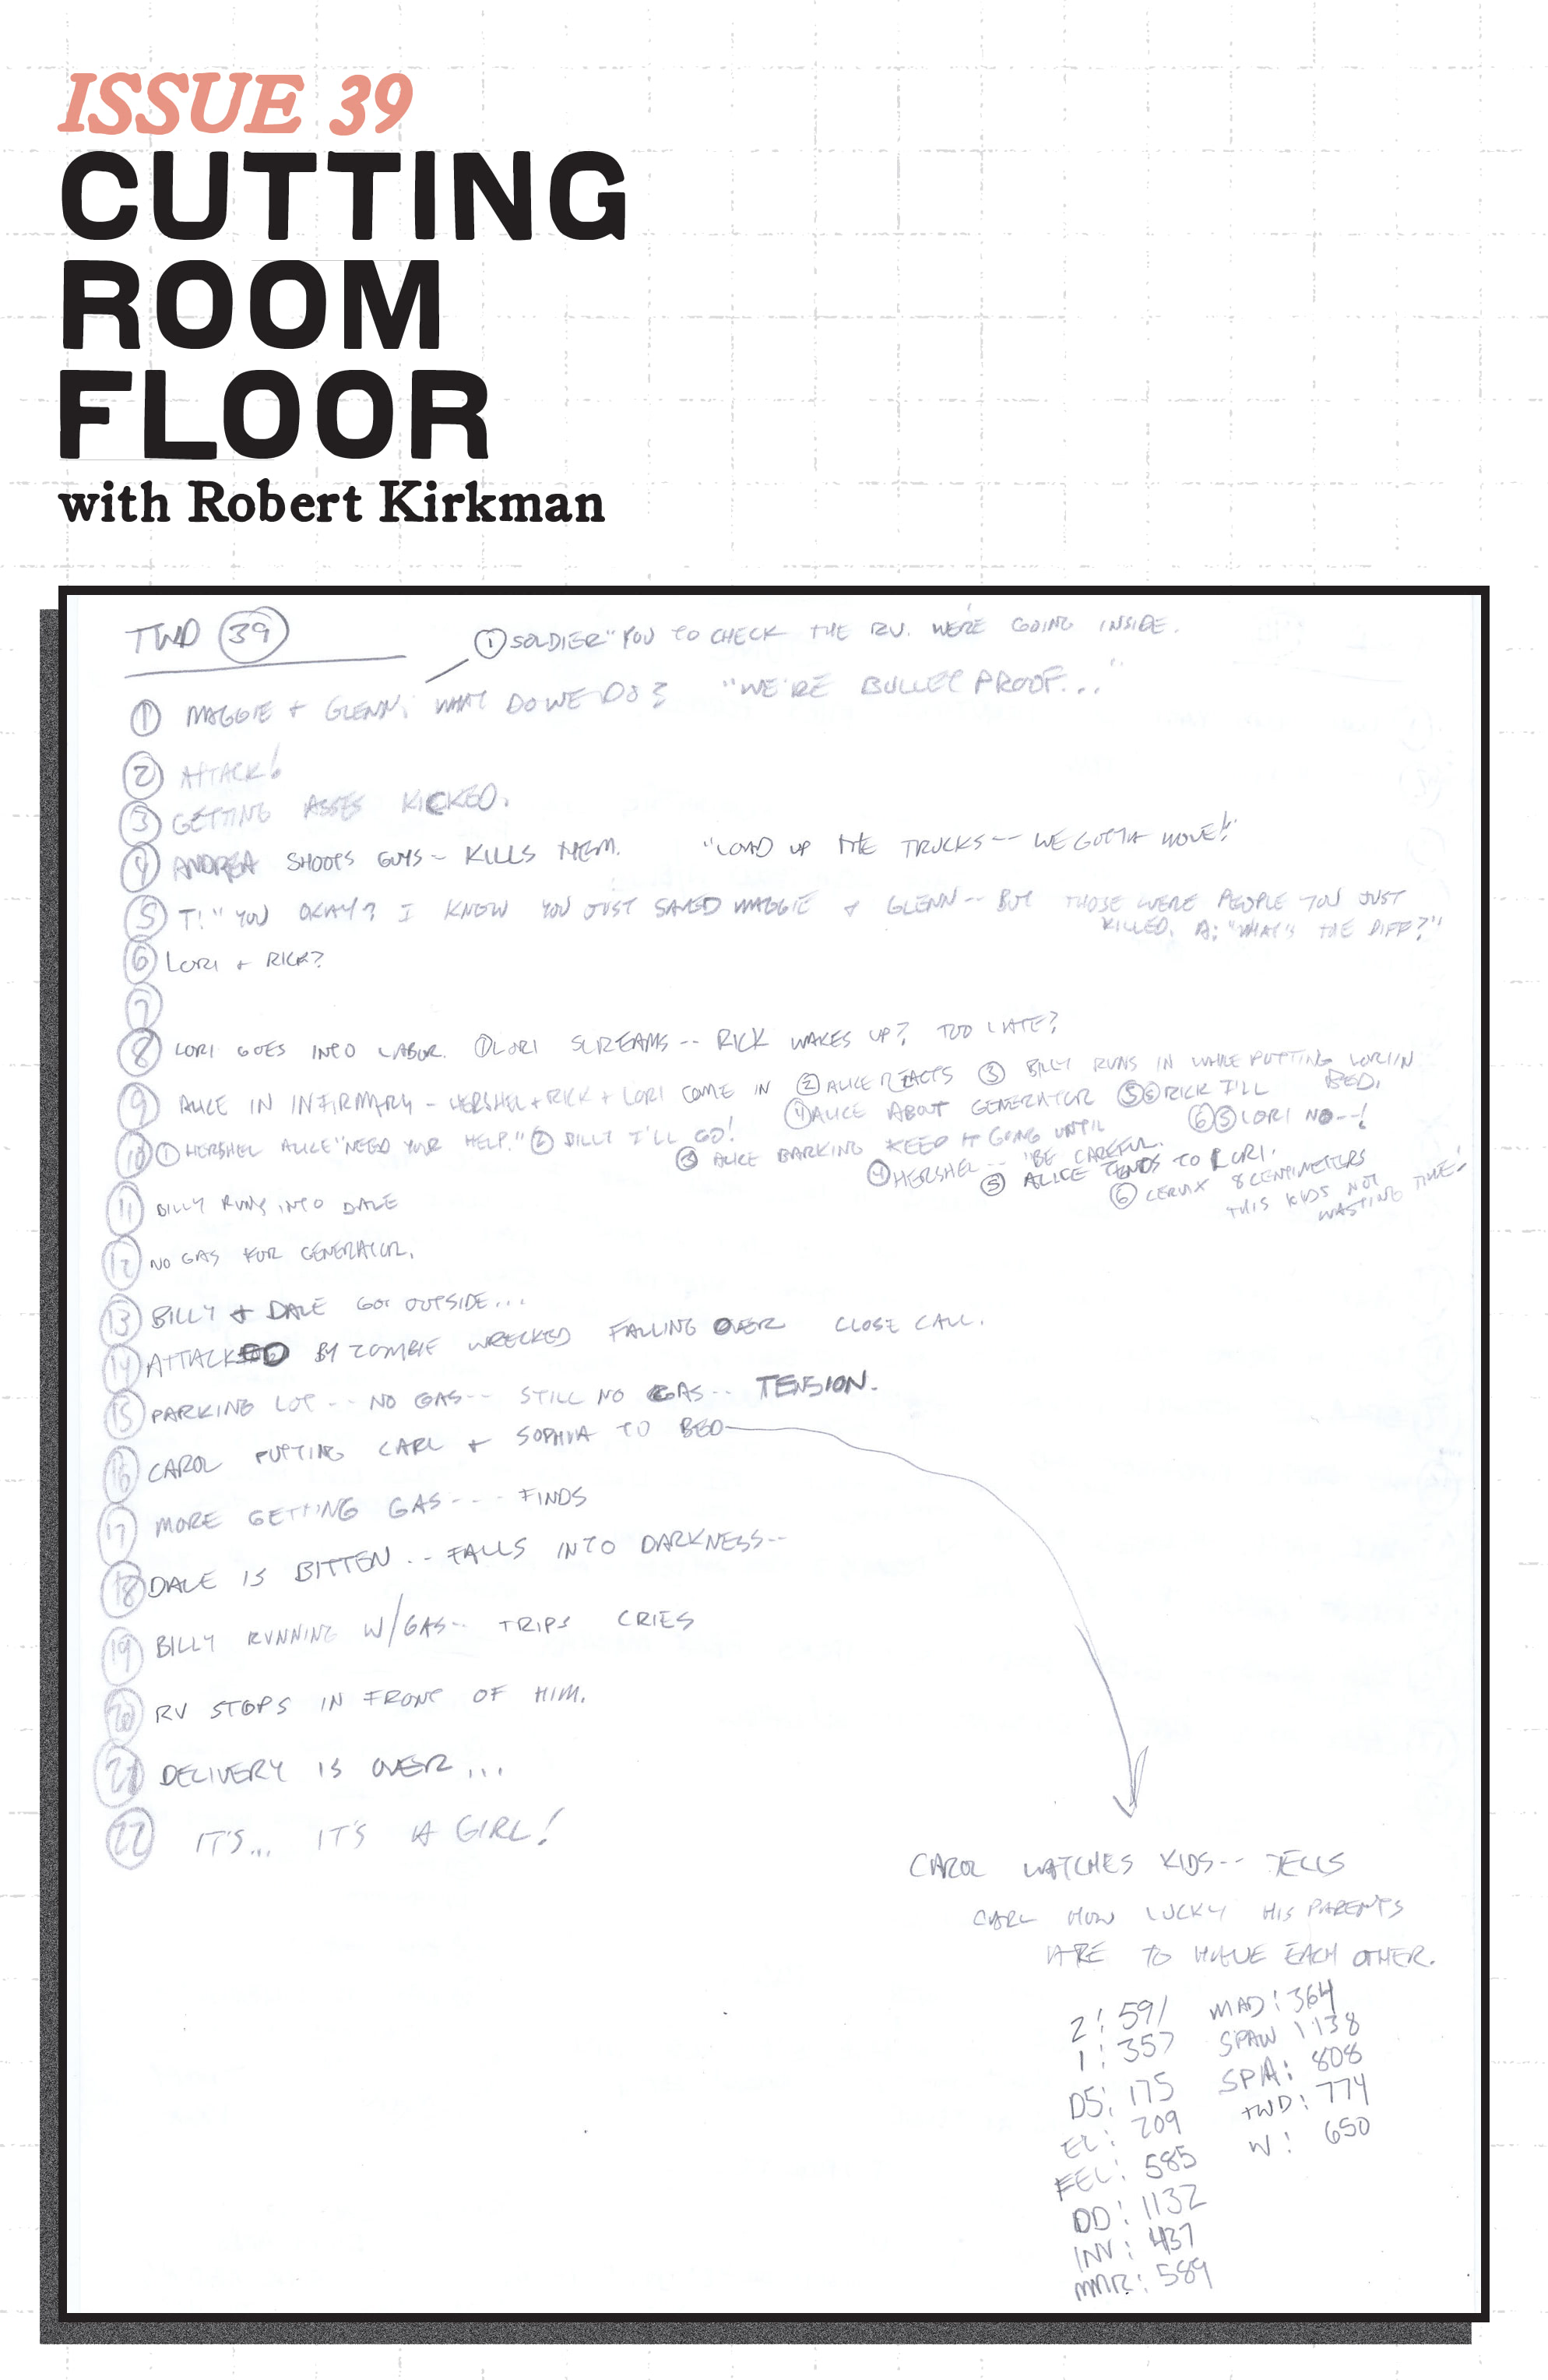 ISSUE 39
CUTTING
ROOM
FLOOR
with Robert Kirkman
TWD 39
① SOLDIER "YOU TO CHECK THE RV. WE'RE GOING INSIDE.
① MAGGIE + GLENN: WHAT DO WE DO? "WE'RE BULLET PROOF..."
② ATTACK!
③ GETTING ASSES KICKED.
④ ANDREA SHOOTS GUYS-- KILLS THEM. "LOAD UP THE TRUCKS-- WE GOTTA MOVE!"
⑤ T: "YOU OKAY? I KNOW YOU JUST SAVED MAGGIE + GLENN-- BUT THOSE WERE PEOPLE YOU JUST
KILLED. A: "WHAT'S THE DIFF?"
⑥ LORI + RICK?
⑦
⑧ LORI GOES INTO LABOR. ① LORI SCREAMS-- RICK WAKES UP? TOO LATE?
⑨ ALICE IN INFIRMARY - HERSHEL + RICK + LORI COME IN ② ALICE REACTS ③ BILLY RUNS IN WHILE PUTTING LORI IN
BED.
④ ALICE ABOUT GENERATOR ⑤⑥ RICK I'LL
⑥⑤ LORI NO--!
⑩ ① HERSHEL ALICE "NEED YOUR HELP." ② BILLY I'LL GO!
③ ALICE BARKING KEEP IT GOING UNTIL
④ HERSHEL-- "BE CAREFUL.
⑤ ALICE TENDS TO LORI.
⑥ CERVIX 8 CENTIMETERS
THIS KIDS NOT
WASTING TIME!
⑪ BILLY RUNS INTO DALE
⑫ NO GAS FOR GENERATOR.
⑬ BILLY + DALE GO OUTSIDE...
⑭ ATTACKED BY ZOMBIE WRECKED FALLING OVER CLOSE CALL.
⑮ PARKING LOT-- NO GAS-- STILL NO GAS-- TENSION.
⑯ CAROL PUTTING CARL + SOPHIA TO BED
⑰ MORE GETTING GAS--- FINDS
⑱ DALE IS BITTEN... FALLS INTO DARKNESS--
⑲ BILLY RUNNING W/GAS-- TRIPS CRIES
⑳ RV STOPS IN FRONT OF HIM.
㉑ DELIVERY IS OVER...
㉒ IT'S... IT'S A GIRL!
CAROL WATCHES KIDS-- TELLS
CARL HOW LUCKY HIS PARENTS
ARE TO HAVE EACH OTHER.
2: 591 MAD: 364
1: 357 SPAW 1138
D5: 175 SPA: 808
EL: 209 TWD: 774
FEL: 585 W: 650
DD: 1132
INV: 437
MMR: 589